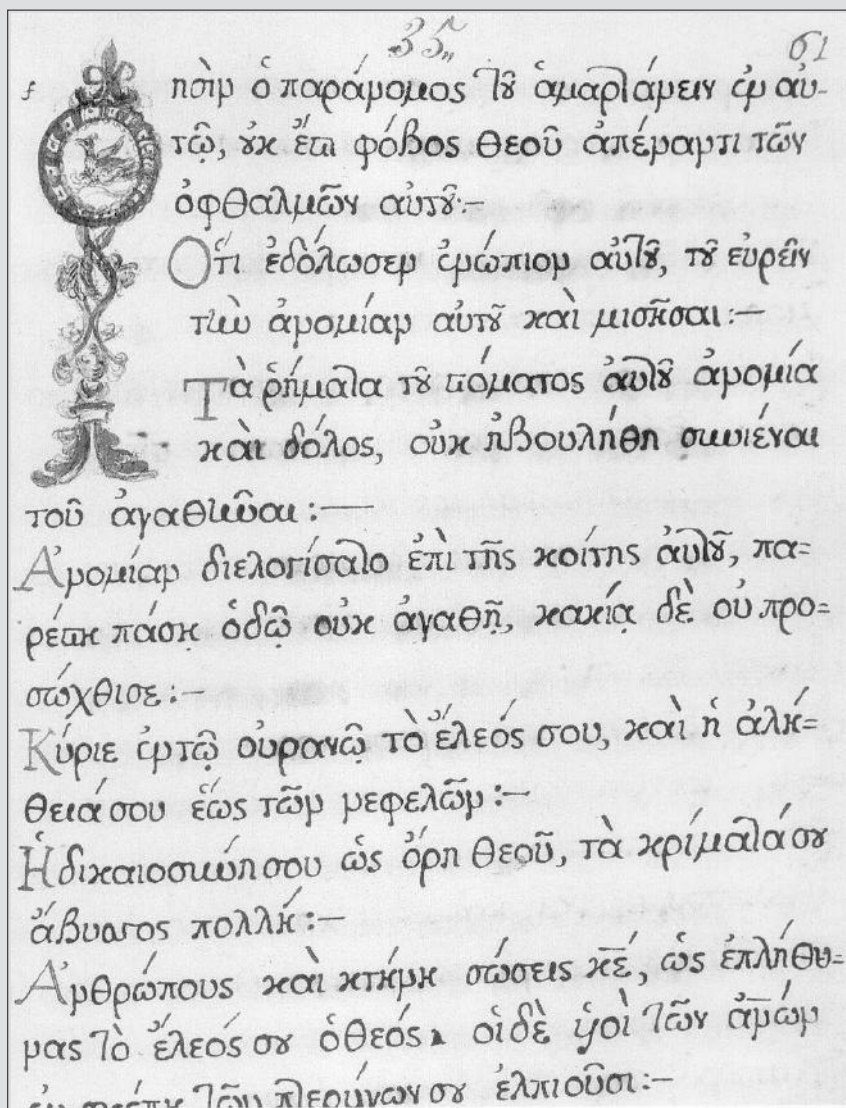 35 61
φησὶν ὁ παράνομος τȣ̃ ἁμαρτάνειν ἐν αὑ-
τῷ, ȣ̓κ ἔστι φόβος θεοῦ ἀπέναντι τῶν
ὀφθαλμῶν αὐτȣ̃:-
Ὅτι ἐδόλωσεν ἐνώπιον αὐτȣ̃, τȣ̃ εὑρεῖν
τὴν ἀνομίαν αὐτȣ̃ καὶ μισῆσαι:-
Τὰ ῥήματα τȣ̃ στόματος αὐτȣ̃ ἀνομία
καὶ δόλος, οὐκ ἠβουλήθη συνιέναι
τοῦ ἀγαθῦναι:-
Ἀνομίαν διελογίσατο ἐπὶ τῆς κοίτης αὐτȣ̃, πα=
ρέστη πάσῃ ὁδῷ οὐκ ἀγαθῇ, κακίᾳ δὲ οὐ προ=
σώχθισε:-
Κύριε ἐν τῷ οὐρανῷ τὸ ἔλεός σου, καὶ ἡ ἀλή=
θειά σου ἕως τῶν νεφελῶν:-
Ἡ δικαιοσύνη σου ὡς ὄρη θεοῦ, τὰ κρίματά σȣ
ἄβυσσος πολλή:-
Ἀνθρώπους καὶ κτήνη σώσεις κ̅ε̅, ὡς ἐπλήθυ=
νας τὸ ἔλεός σȣ ὁ θεός. οἱ δὲ υἱοὶ τῶν ἀ̅ν̅ων
ἐν σκέπῃ τῶν πτερύγων σȣ ἐλπιοῦσι:-